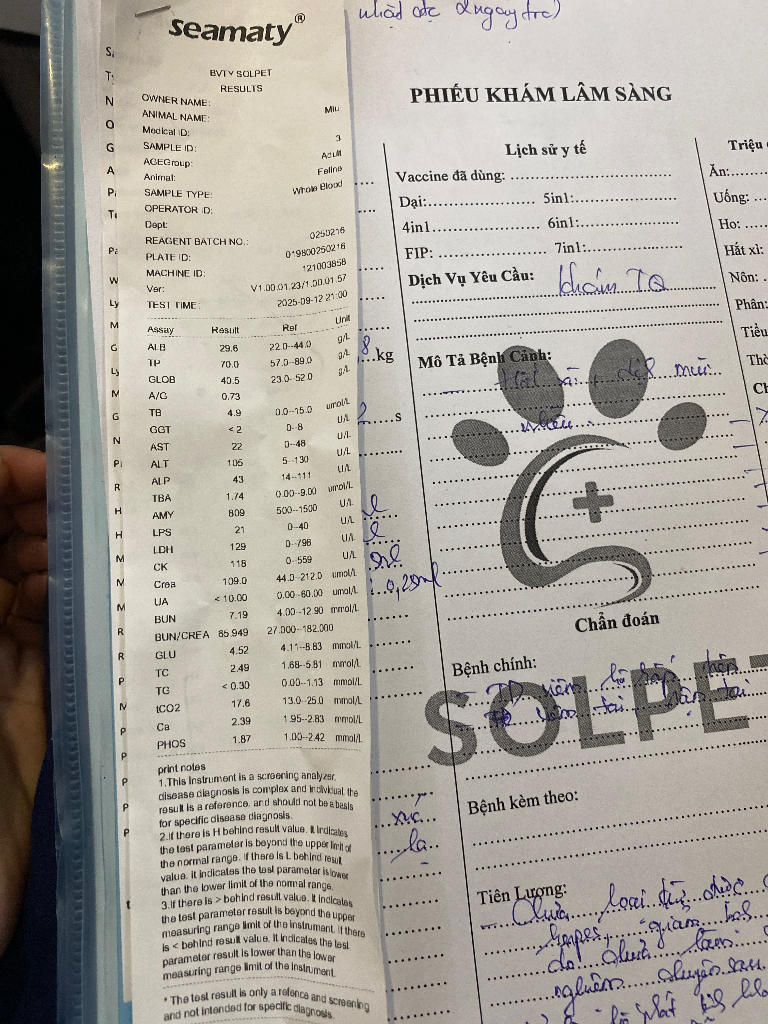 nhãn các 2 ngay trc)
seamaty®
BVTY SOLPET
RESULTS
OWNER NAME:
ANIMAL NAME: Miu
Medical ID:
SAMPLE ID: 3
AGEGroup: Adult
Animal: Feline
SAMPLE TYPE: Whole Blood
OPERATOR ID:
Dept:
REAGENT BATCH NO.: 0250216
PLATE ID: 019800250216
MACHINE ID: 121003858
Ver: V1.00.01.23/1.00.01.57
TEST TIME: 2025-09-12 21:00
Assay Result Ref Unit
ALB 29.6 22.0--44.0 g/L
TP 70.0 57.0--89.0 g/L
GLOB 40.5 23.0--52.0 g/L
A/G 0.73
TB 4.9 0.0--15.0 umol/L
GGT < 2 0--8 U/L
AST 22 0--48 U/L
ALT 105 5--130 U/L
ALP 43 14--111 U/L
TBA 1.74 0.00--9.00 umol/L
AMY 809 500--1500 U/L
LPS 21 0--40 U/L
LDH 129 0--798 U/L
CK 118 0--559 U/L
Crea 109.0 44.0--212.0 umol/L
UA < 10.00 0.00--60.00 umol/L
BUN 7.19 4.00--12.90 mmol/L
BUN/CREA 65.949 27.000--182.000
GLU 4.52 4.11--8.83 mmol/L
TC 2.49 1.68--5.81 mmol/L
TG < 0.30 0.00--1.13 mmol/L
tCO2 17.6 13.0--25.0 mmol/L
Ca 2.39 1.95--2.83 mmol/L
PHOS 1.87 1.00--2.42 mmol/L
print notes
1.This Instrument is a screening analyzer,
disease diagnosis is complex and individual, the
result is a reference, and should not be a basis
for specific disease diagnosis.
2.If there is H behind result value. It indicates
the test parameter is beyond the upper limit of
the normal range. If there is L behind result
value, it indicates the test parameter is lower
than the lower limit of the normal range.
3.If there is > behind result value. It indicates
the test parameter result is beyond the upper
measuring range limit of the instrument. If there
is < behind result value. It indicates the test
parameter result is lower than the lower
measuring range limit of the instrument.
* The test result is only a refence and screening
and not intended for specific diagnosis.
8 kg
s
0,25ml
PHIẾU KHÁM LÂM SÀNG
Lịch sử y tế
Vaccine đã dùng:
Dại: 5in1:
4in1 6in1:
FIP: 7in1:
Dịch Vụ Yêu Cầu: khám TQ
Mô Tả Bệnh Cảnh:
dịch mũi
nhiều.
Chẩn đoán
Bệnh chính:
- TD viêm hô hấp trên
viêm tai
SOLPET
Bệnh kèm theo:
Tiên Lượng:
- Chưa loại trừ được
herpes, giảm
do chưa làm
nghiệm chuyên sâu
Triệu
Ăn:
Uống:
Ho:
Hắt xì:
Nôn:
Phân:
Tiểu